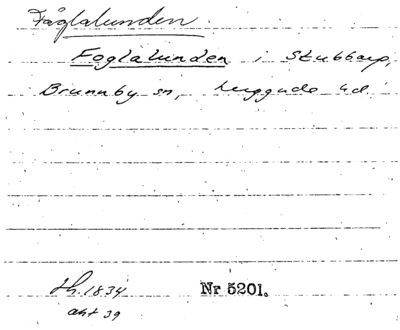 Fåglalunden
Foglalunden i Stubbarp,
Brunnby sn, Luggude hd.
Th. 1834 Nr 5201.
akt 39